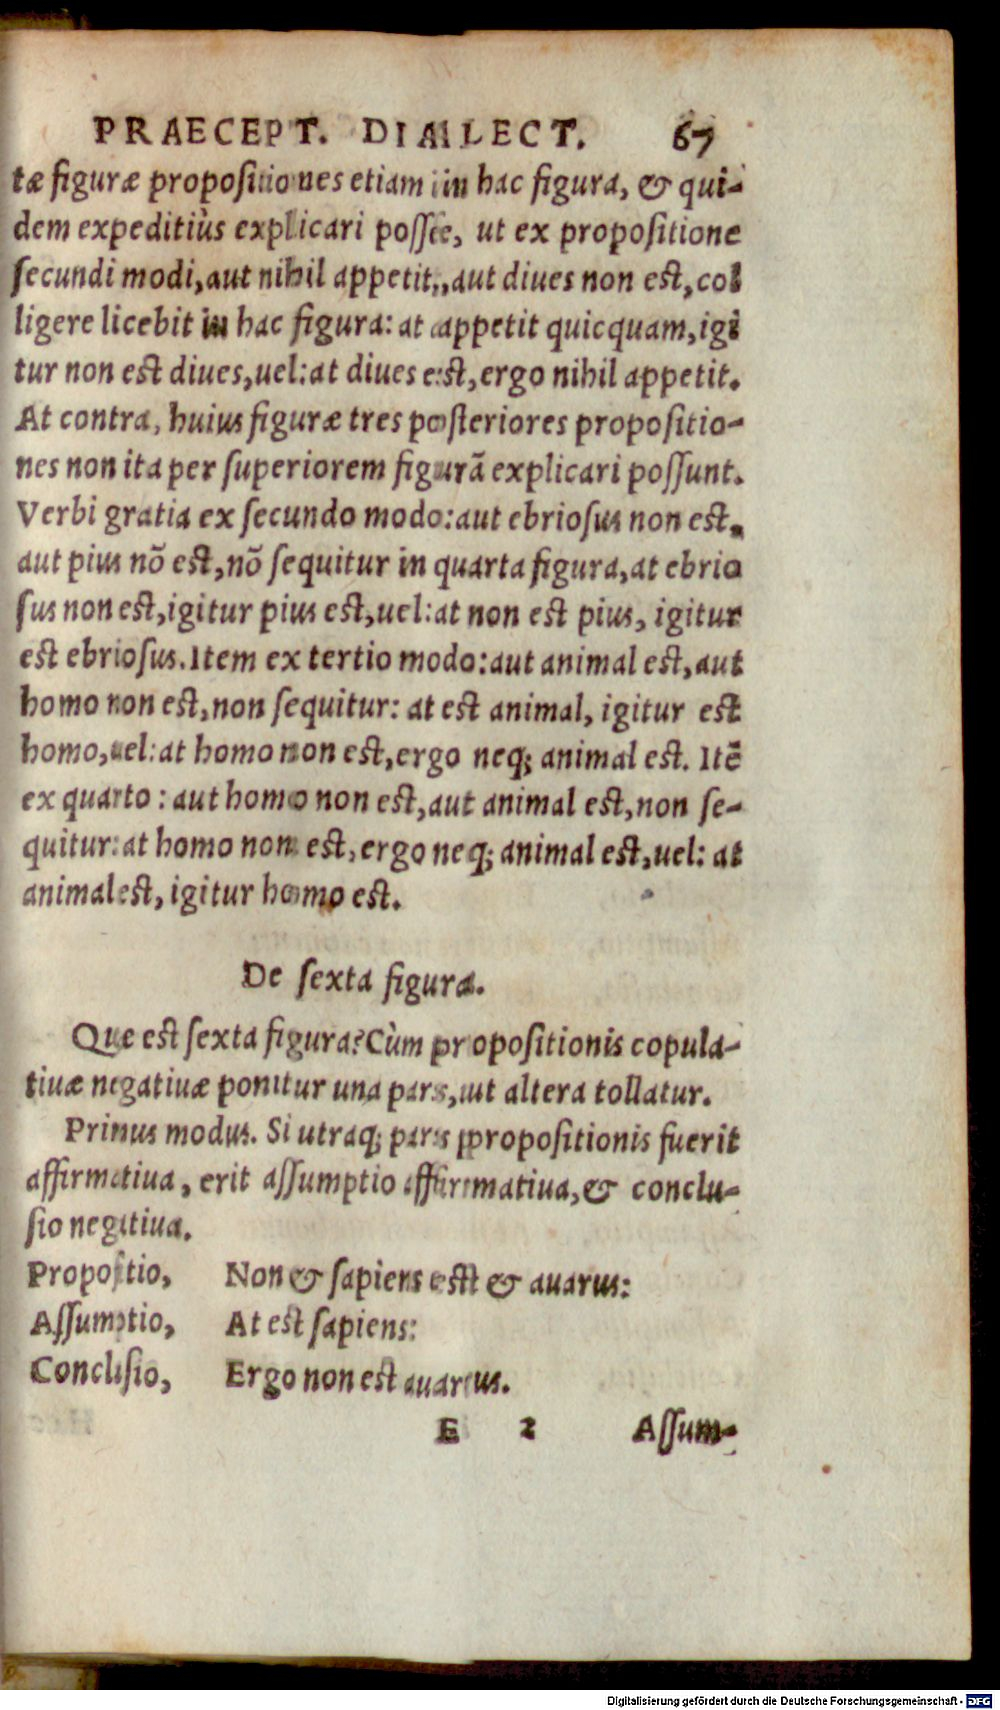 PRAECEPT. DIALLECT. 67
tæ figuræ propositiones etiam in hac figura, & qui-
dem expeditiùs explicari posse, ut ex propositione
secundi modi, aut nihil appetit, aut diues non est, col
ligere licebit in hac figura: at appetit quicquam, igi
tur non est diues, uel: at diues est, ergo nihil appetit.
At contra, huius figuræ tres posteriores propositio-
nes non ita per superiorem figurã explicari possunt.
Verbi gratia ex secundo modo: aut ebriosus non est,
aut pius nõ est, nõ sequitur in quarta figura, at ebrio
sus non est, igitur pius est, uel: at non est pius, igitur
est ebriosus. Item ex tertio modo: aut animal est, aut
homo non est, non sequitur: at est animal, igitur est
homo, uel: at homo non est, ergo neq; animal est. Itẽ
ex quarto: aut homo non est, aut animal est, non se-
quitur: at homo non est, ergo neq; animal est, uel: at
animal est, igitur homo est.
De sexta figura.
Que est sexta figura? Cùm propositionis copula-
tiuæ negatiuæ ponitur una pars, ut altera tollatur.
Primus modus. Si utraq; pars propositionis fuerit
affirmatiua, erit assumptio affirmatiua, & conclu-
sio negatiua.
Propositio, Non & sapiens est & auarus:
Assumptio, At est sapiens:
Conclusio, Ergo non est auarus.
E 2 Assum-
Digitalisierung gefördert durch die Deutsche Forschungsgemeinschaft - DFG